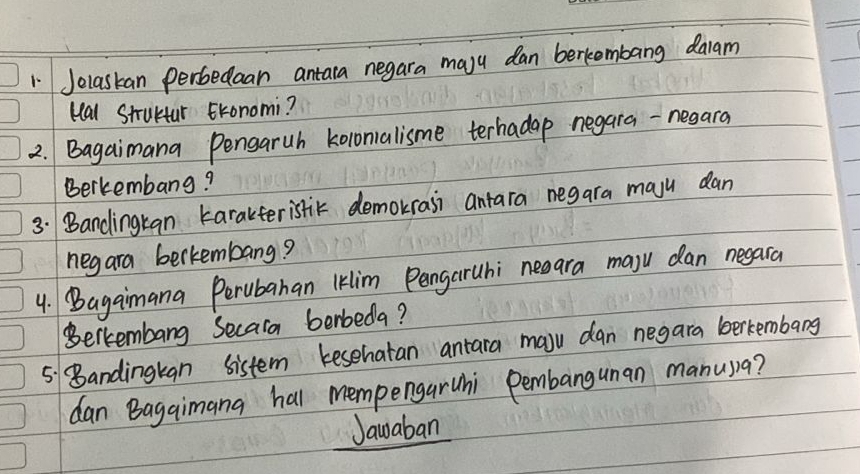 1. Jelaskan perbedaan antara negara maju dan berkembang dalam
Hal Struktur Ekonomi?
2. Bagaimana Pengaruh kolonialisme terhadap negara - negara
Berkembang?
3. Bandingkan karakteristik demokrasi antara negara maju dan
negara berkembang?
4. Bagaimana Perubahan Iklim Pengaruhi negara maju dan negara
Berkembang Secara berbeda?
5. Bandingkan sistem kesehatan antara maju dan negara berkembang
dan Bagaimana hal mempengaruhi Pembangunan manusia?
Jawaban